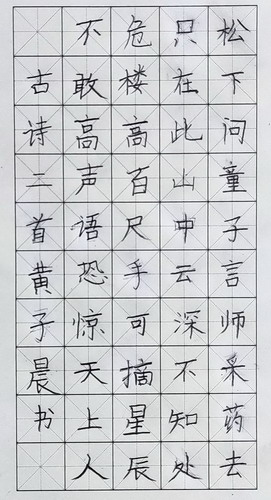 松下问童子言师采药去
只在此山中云深不知处
危楼高百尺手可摘星辰
不敢高声语恐惊天上人
古诗三首黄子晨书